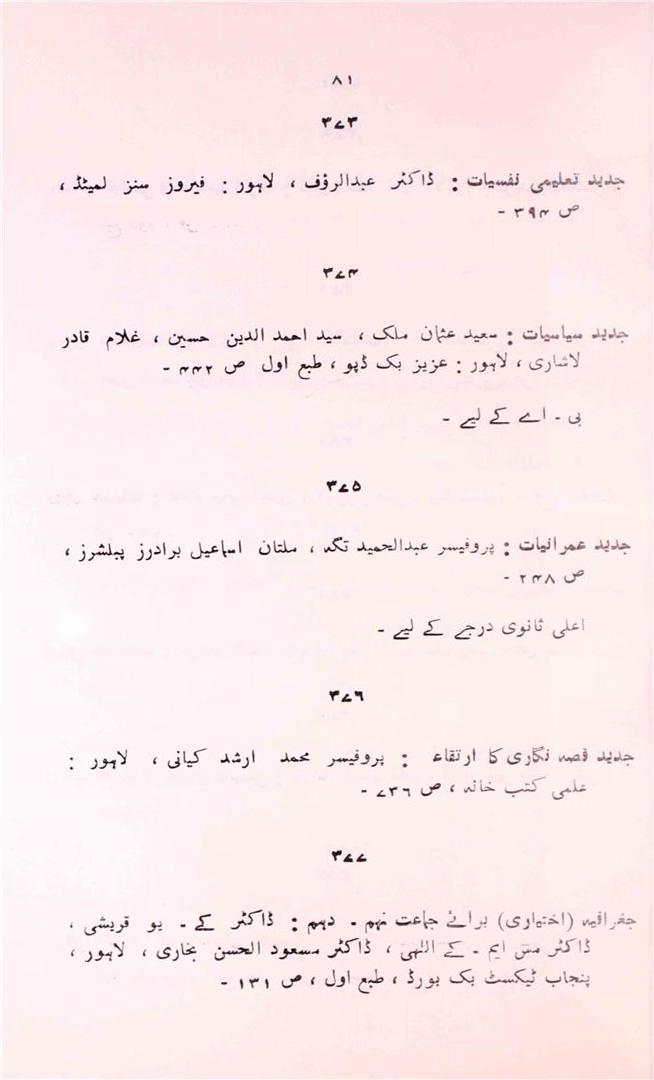 ۸۱
۳۷۳
جدید تعلیمی نفسیات : ڈاکٹر عبدالرؤف ، لاہور : فیروز سنز لمیٹڈ ،
ص ۳۹۴ -
۳۷۴
جدید سیاسیات : سعید عثمان ملک ، سید احمد الدین حسین ، غلام قادر
لاشاری ، لاہور : عزیز بک ڈپو ، طبع اول ص ۴۴۲ -
بی - اے کے لیے -
۳۷۵
جدید عمرانیات : پروفیسر عبدالحمید تگہ ، ملتان اسماعیل برادرز پبلشرز ،
ص ۲۴۸ -
اعلی ثانوی درجے کے لیے -
۳۷۶
جدید قصہ نگاری کا ارتقاء : پروفیسر محمد ارشد کیانی ، لاہور :
علمی کتب خانہ ، ص ۷۳۶ -
۳۷۷
جغرافیہ (اختیاری) برائے جماعت نہم - دہم : ڈاکٹر کے - یو قریشی ،
ڈاکٹر مس ایم - کے اللہی ، ڈاکٹر مسعود الحسن بخاری ، لاہور ،
پنجاب ٹیکسٹ بک بورڈ ، طبع اول ، ص ۱۳۱ -